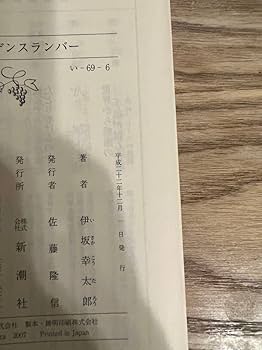 デンスランバー
い-69-6
平成二十二年十二月 一日 発行
著者 伊坂幸太郎
発行者 佐藤隆信
発行所 株式会社 新潮社
式会社 製本・錦明印刷株式会社
2007 Printed in Japan